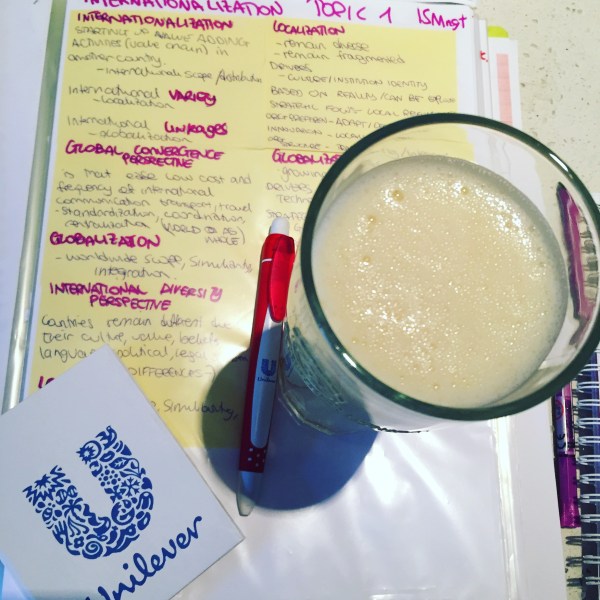 INTERNATIONALIZATION TOPIC 1 ISMngt
INTERNATIONALIZATION
STARTING UP VALUE ADDING
ACTIVITIES (value chain) in
another country.
- international scope
International VARIETY
- localization
International LINKAGES
- globalization
GLOBAL CONVERGENCE
PERSPECTIVE
is that ease low cost and
frequency of international
communication transport, travel
- Standardization, coordination,
centralization (WORLD AS WHOLE)
GLOBALIZATION
- worldwide scope, similarity,
integration.
INTERNATIONAL DIVERSITY
PERSPECTIVE
Countries remain different
their culture, value, beliefs
language, political, legal
DIFFERENCES?)
similarity,
LOCALIZATION
- remain diverse
- remain fragmented
DRIVERS
- CULTURE/INSTITUTION IDENTITY
BASED ON REALITY/CAN BE
STRATEGIC FOCUS LOCAL
LOCAL
GLOBALIZA
growin
DRIVERS
TECHN
U
Unilever
Unilever